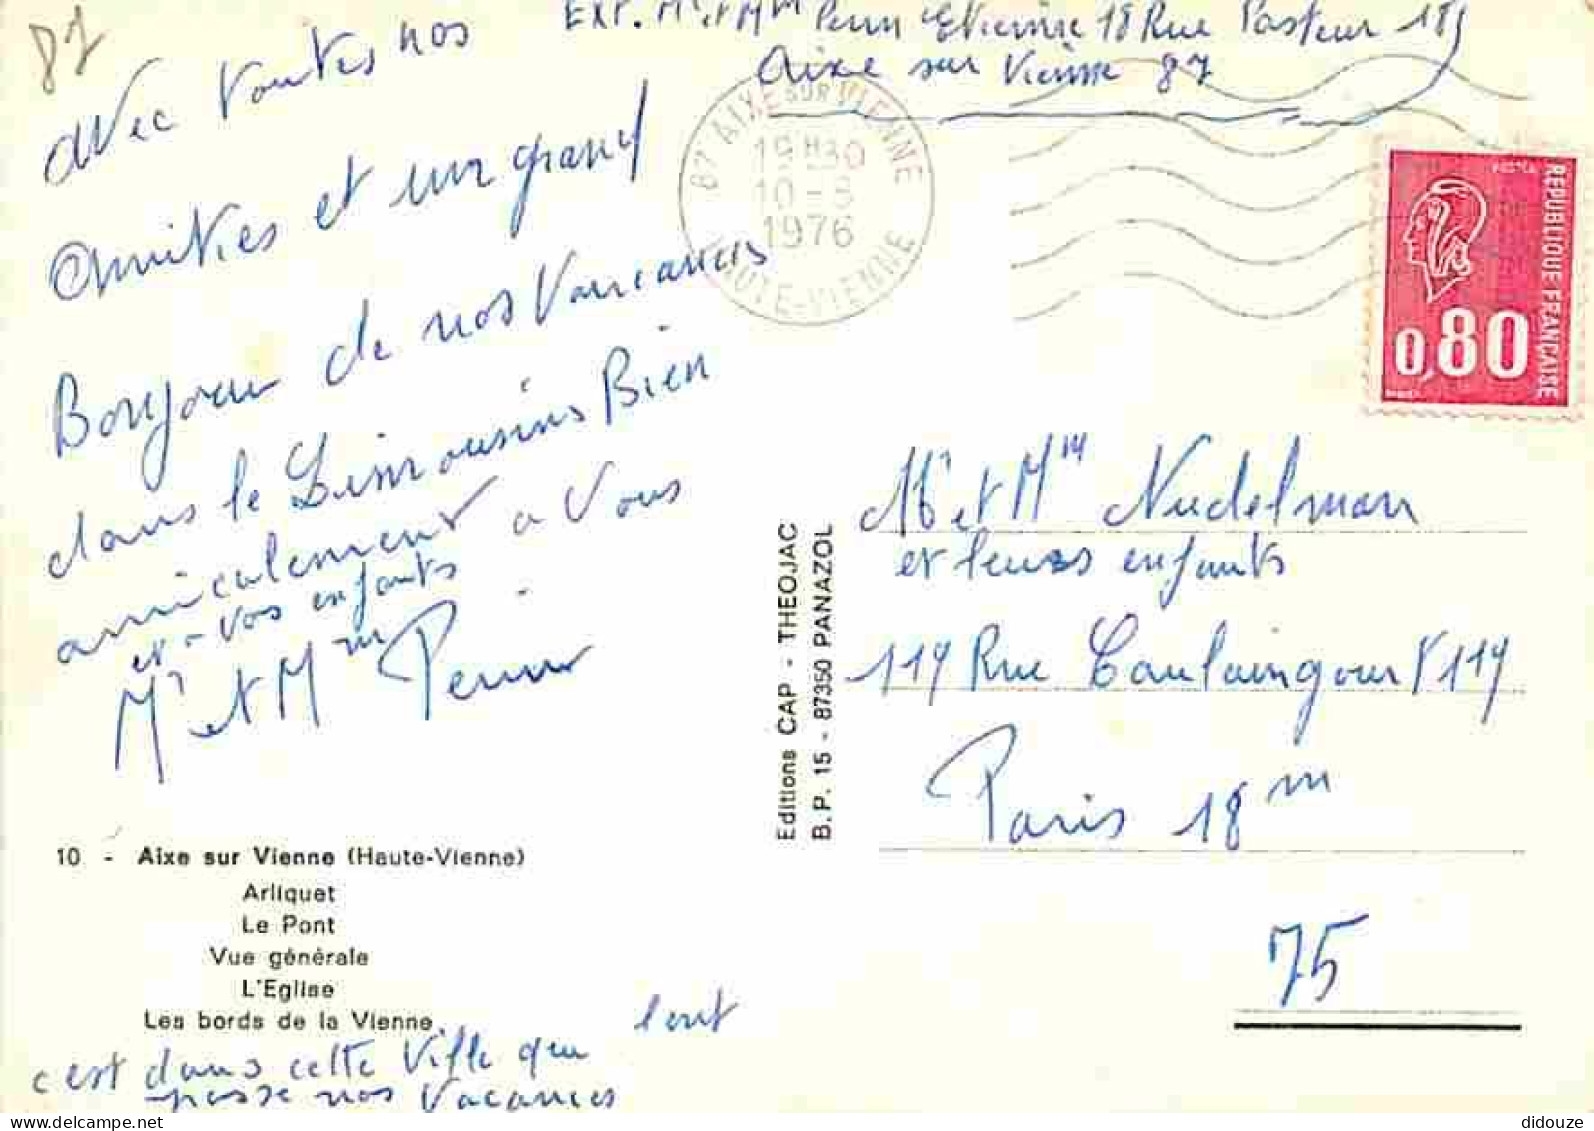 87
EXP. Mr et Mm Penin Etienne 18 Rue Pasteur 18
Aixe sur Vienne 87
avec toutes nos
Amitiés et un grand
Bonjour de nos Vancances
dans le Limousins Bien
amicalement a Vous
et - vos enfants
Mr et Mm Penin
87 AIXE SUR VIENNE
19H30
10-8
1976
HAUTE-VIENNE
REPUBLIQUE FRANÇAISE
POSTES
0,80
Mr et Mm Nudelman
et leurs enfants
119 Rue Caulaingourt 119
Paris 18 m
75
Editions CAP - THEOJAC
B.P. 15 - 87350 PANAZOL
10 - Aixe sur Vienne (Haute-Vienne)
Arliquet
Le Pont
Vue générale
L'Eglise
Les bords de la Vienne
c'est dans cette Ville que
passe nos Vacances
delcampe.net
didouze